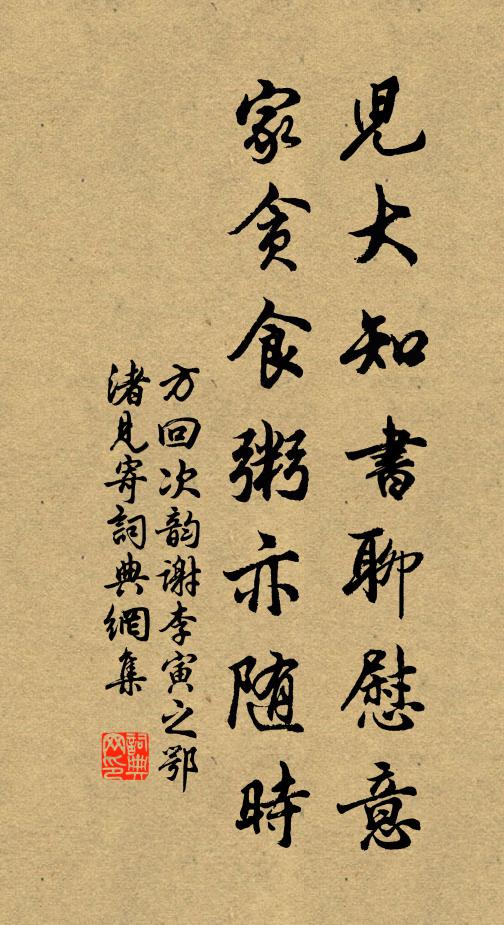 児大知書聊慰意
家貪食粥亦随時
方回次韵謝李寅之鄂
渚見寄詞典網集
詞典网印